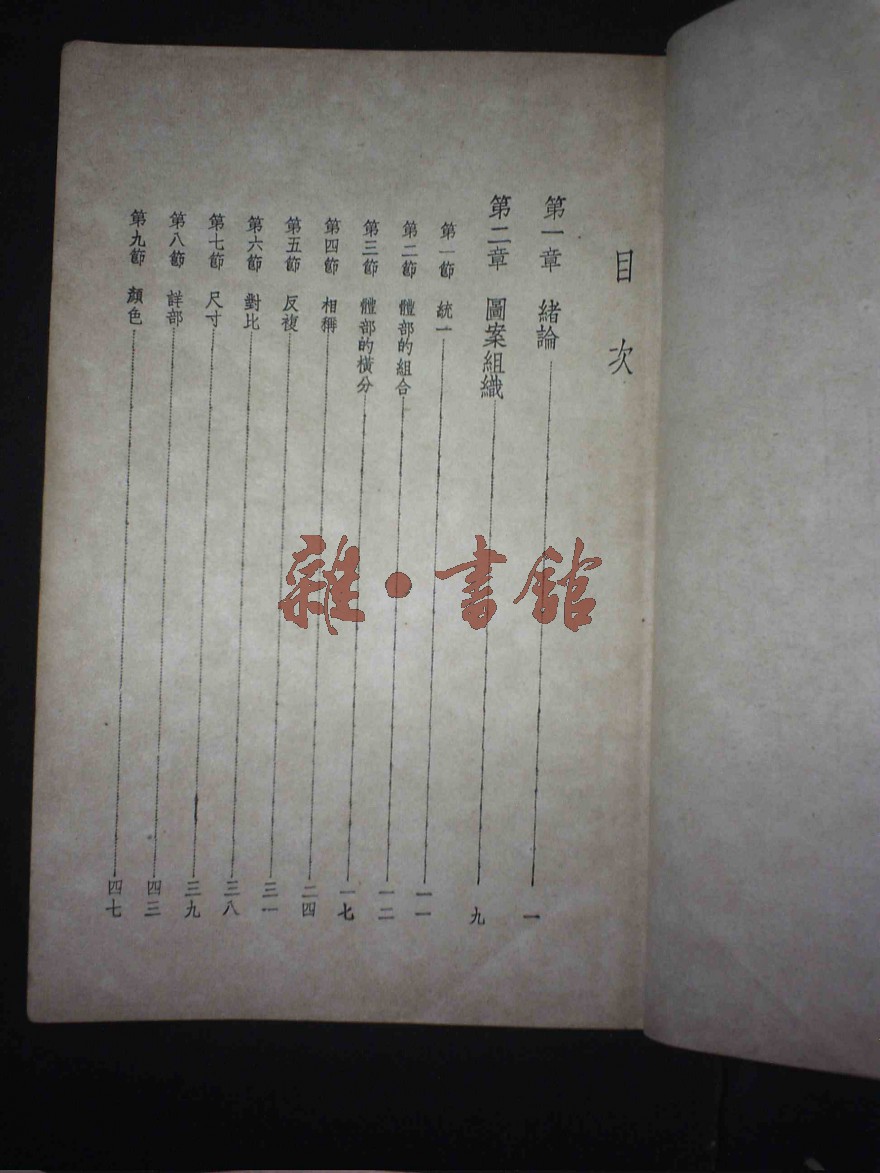 目次
第一章 緒論 一
第二章 圖案組織 九
第一節 統一 一一
第二節 體部的組合 一二
第三節 體部的橫分 一七
第四節 相稱 二四
第五節 反複 三一
第六節 對比 三八
第七節 尺寸 三九
第八節 詳部 四三
第九節 顏色 四七
雜·書館